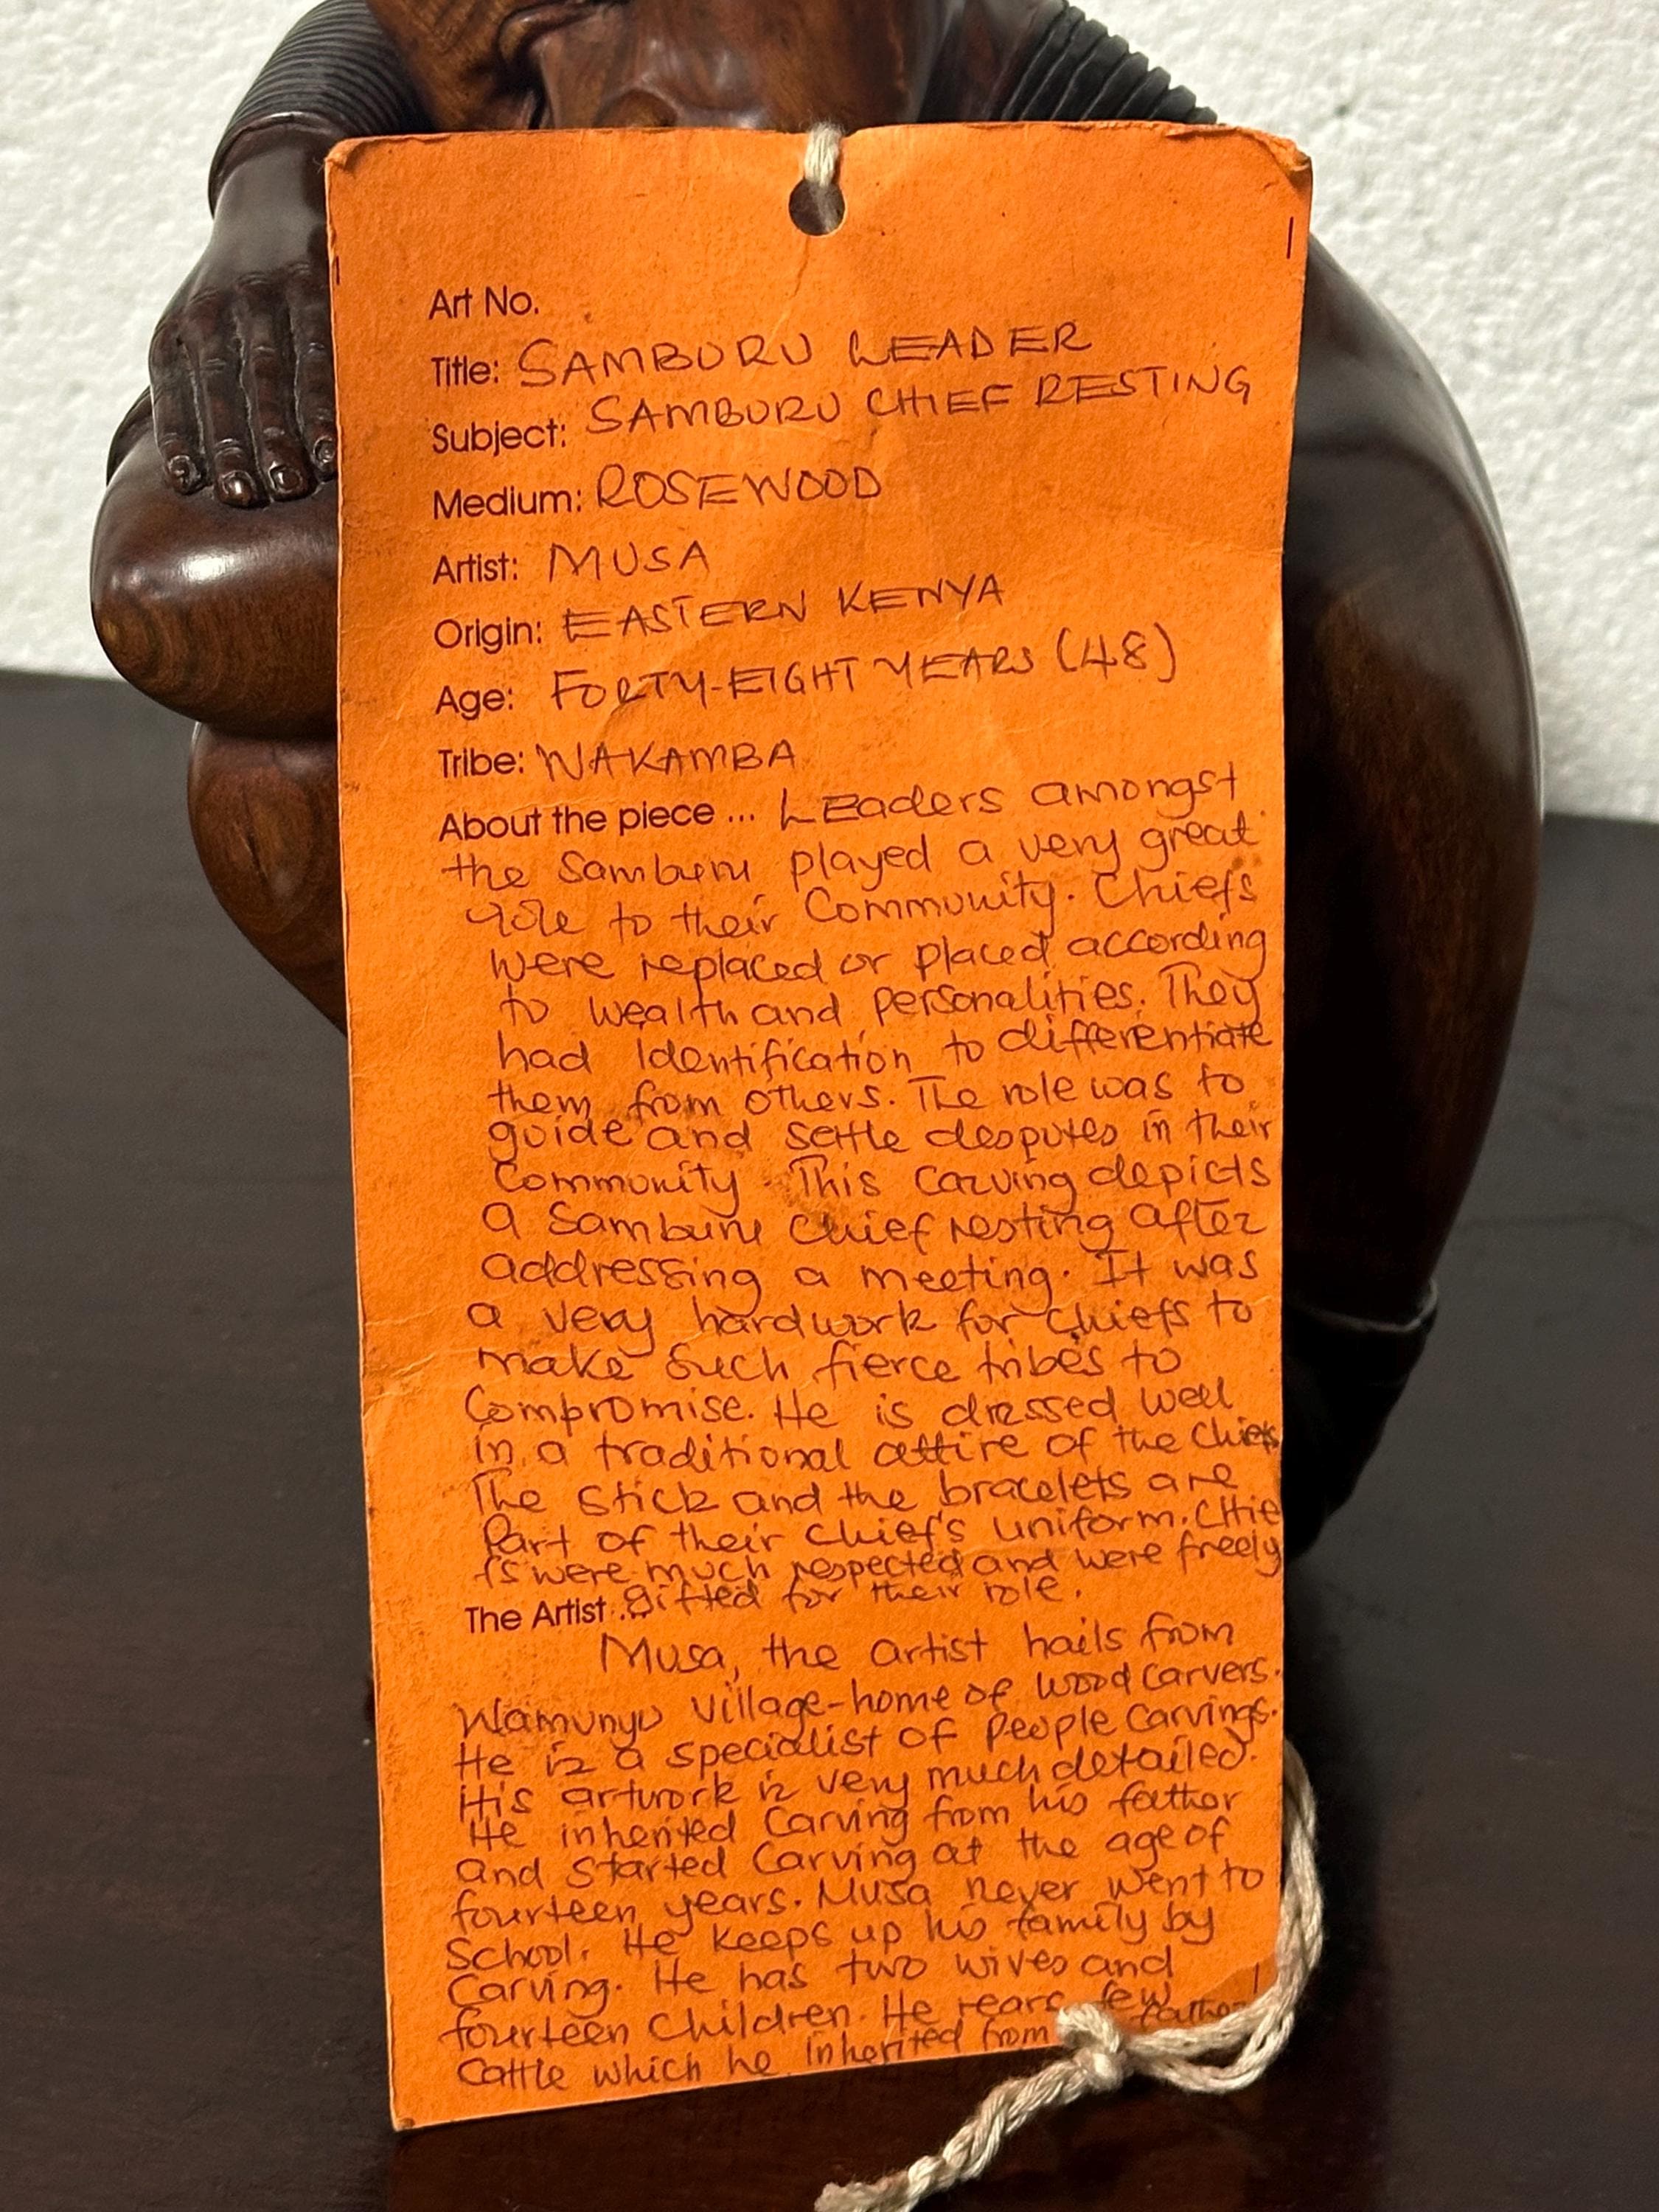 Art No.
Title: SAMBURU LEADER
Subject: SAMBURU CHIEF RESTING
Medium: ROSEWOOD
Artist: MUSA
Origin: EASTERN KENYA
Age: FORTY-EIGHT YEARS (48)
Tribe: WAKAMBA
About the piece ... LEaders amongst
the Samburu played a very great
role to their Community. Chiefs
were replaced or placed according
to wealth and personalities. They
had Identification to differentiate
them from others. The role was to
guide and settle desputes in their
Community. This Carving depicts
a Samburu Chief resting after
addressing a meeting. It was
a very hardwork for Chiefs to
make such fierce tribes to
Compromise. He is dressed well
in a traditional attire of the Chiefs
The stick and the bracelets are
Part of their Chief's uniform. CHie
fs were much respected and were freely
gifted for their role.
The Artist ...
Musa, the artist hails from
Wamunyu village-home of wood carvers.
He is a specialist of People Carvings.
His artwork is very much detailed.
He inherited Carving from his father
and started Carving at the age of
fourteen years. Musa never went to
School. He keeps up his family by
Carving. He has two wives and
fourteen Children. He rears few
Cattle which he Inherited from father